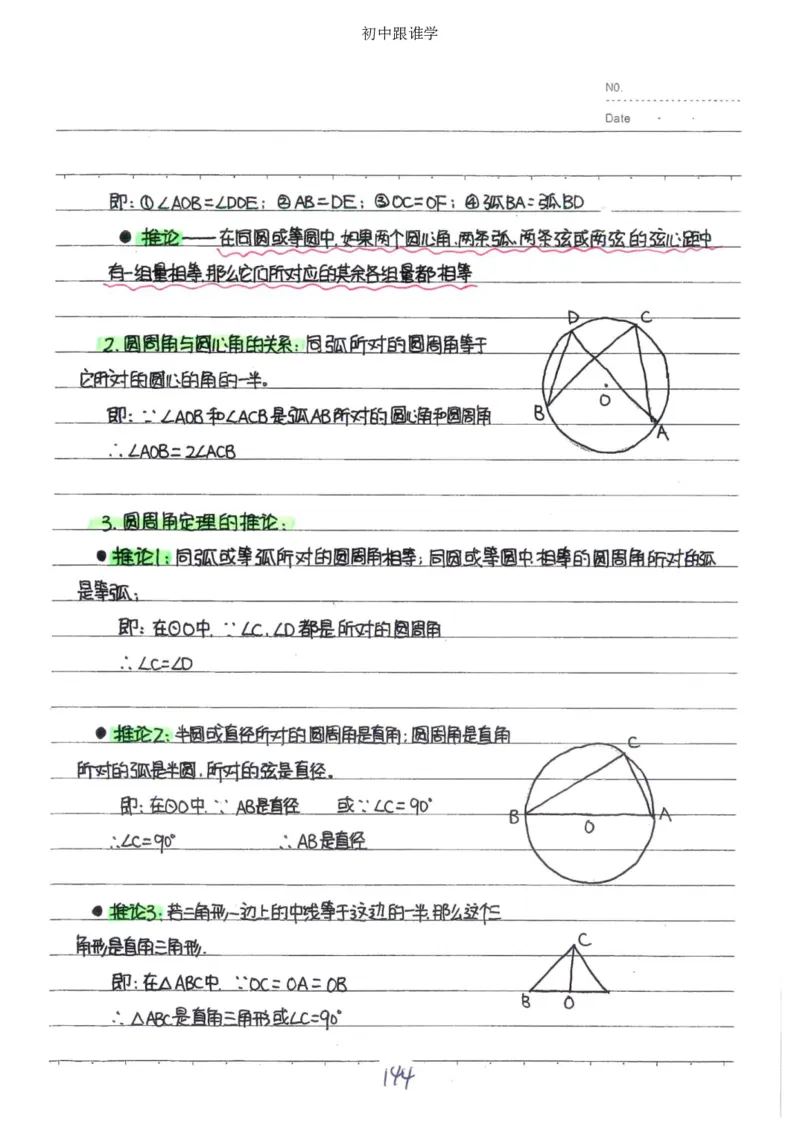 初中跟谁学
NO.
Date · ·
即: ①∠AOB=∠DOE; ②AB=DE; ③OC=OF; ④弧BA=弧BD
● 推论——在同圆或等圆中,如果两个圆心角、两条弧、两条弦或两弦的弦心距中
有一组量相等,那么它们所对应的其余各组量都相等
D C
2.圆周角与圆心角的关系:同弧所对的圆周角等于
它所对的圆心的角的一半。
O
即: ∵∠AOB和∠ACB是弧AB所对的圆心角和圆周角
B
A
∴∠AOB=2∠ACB
3.圆周角定理的推论:
● 推论1:同弧或等弧所对的圆周角相等;同圆或等圆中,相等的圆周角所对的弧
是等弧;
即:在⊙O中,∵∠C,∠D都是所对的圆周角
∴∠C=∠D
● 推论2:半圆或直径所对的圆周角是直角;圆周角是直角
C
所对的弧是半圆,所对的弦是直径。
即:在⊙O中,∵AB是直径 或∵∠C=90°
B O A
∴∠C=90° ∴AB是直径
● 推论3:若三角形一边上的中线等于这边的一半,那么这个三
角形是直角三角形.
C
即:在△ABC中,∵OC=OA=OB
B O
∴△ABC是直角三角形或∠C=90°
144